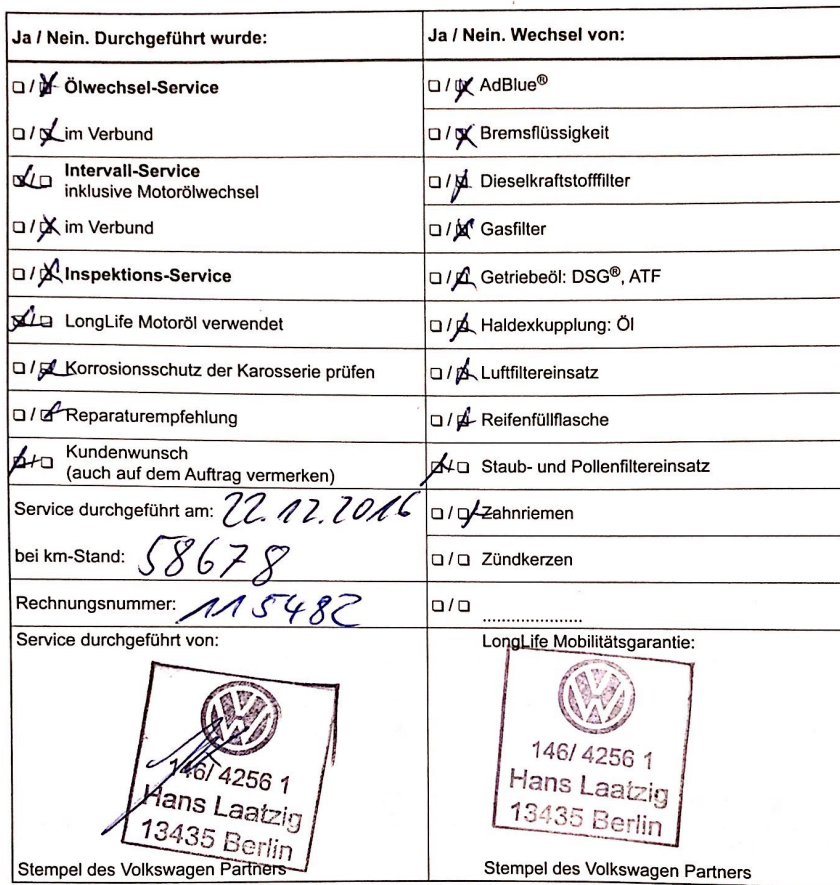 Ja / Nein. Durchgeführt wurde:
Ölwechsel-Service
im Verbund
Intervall-Service
inklusive Motorölwechsel
im Verbund
Inspektions-Service
LongLife Motoröl verwendet
Korrosionsschutz der Karosserie prüfen
Reparaturempfehlung
Kundenwunsch
(auch auf dem Auftrag vermerken)
Service durchgeführt am: 22.12.2016
bei km-Stand: 58678
Rechnungsnummer: 115482
Service durchgeführt von:
VW
146/ 4256 1
Hans Laatzig
13435 Berlin
Stempel des Volkswagen Partners
Ja / Nein. Wechsel von:
AdBlue®
Bremsflüssigkeit
Dieselkraftstofffilter
Gasfilter
Getriebeöl: DSG®, ATF
Haldexkupplung: Öl
Luftfiltereinsatz
Reifenfüllflasche
Staub- und Pollenfiltereinsatz
Zahnriemen
Zündkerzen
......................
LongLife Mobilitätsgarantie:
VW
146/ 4256 1
Hans Laatzig
13435 Berlin
Stempel des Volkswagen Partners